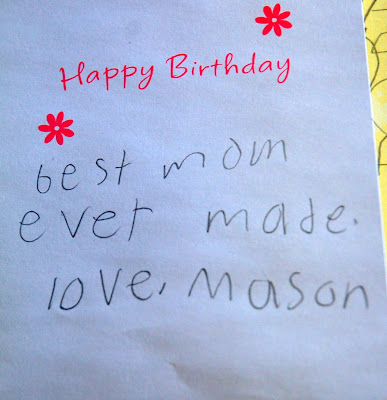 Happy Birthday
best mom
ever made.
love, Mason